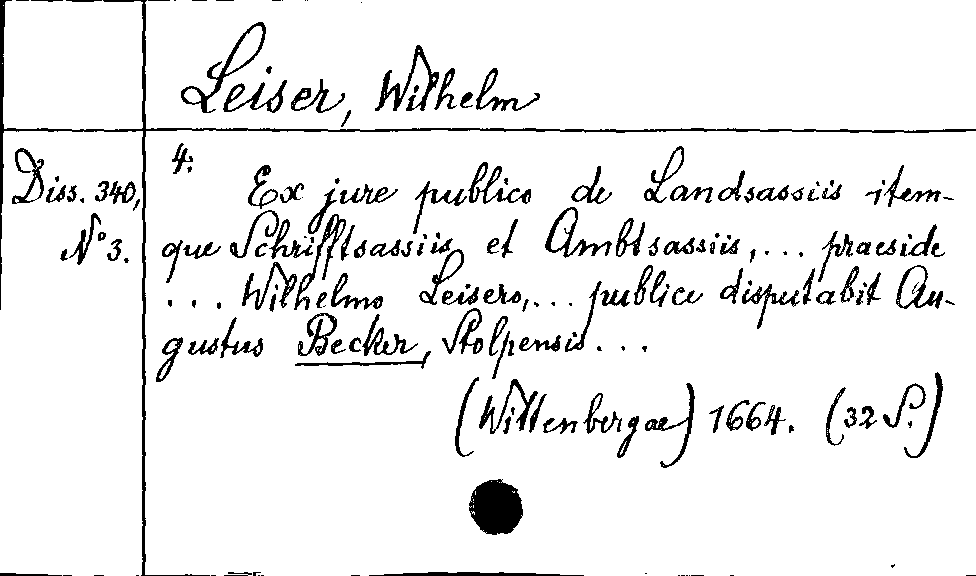 Leiser, Wilhelm
Diss. 340,
No 3.
4.
Ex jure publico de Landsassiis item-
que Schrifftsassiis et Ambtsassiis, ... praeside
... Wilhelmo Leisero, ... publice disputabit Au-
gustus Becker, Stolpensis ...
(Wittenbergae) 1664. (32 S.)